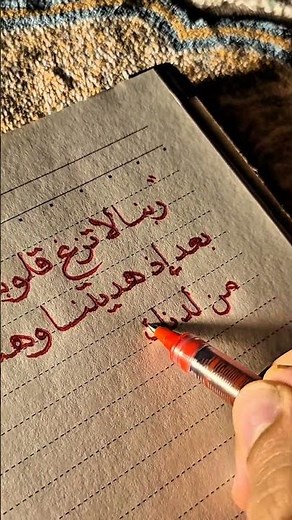 "ربنا لا تزغ قلوب
بعد إذ هديتنا وهـ
من لدنك